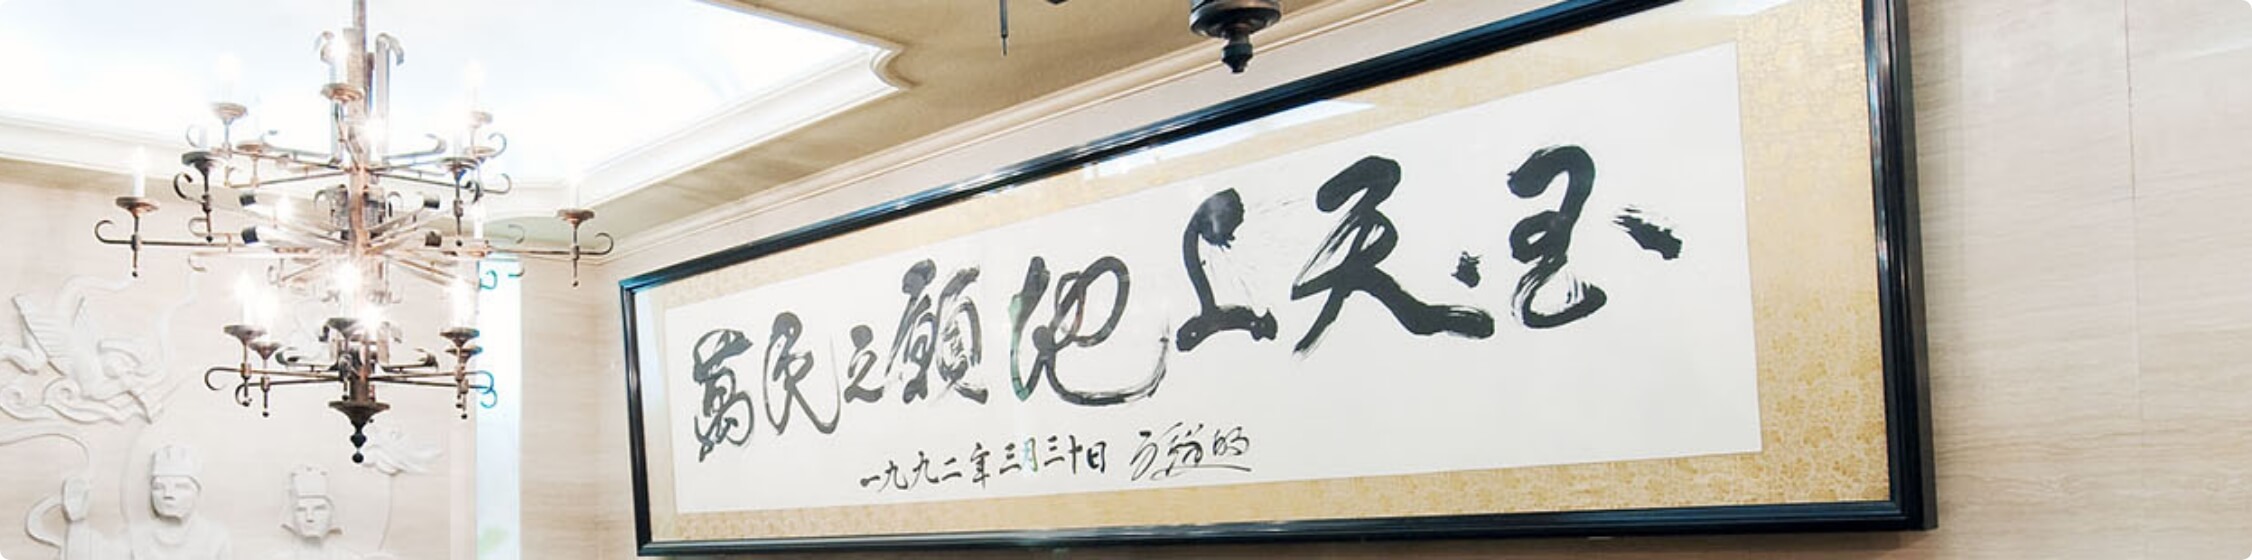 萬民之願地上天国
一九九二年三月三十日 文鮮明